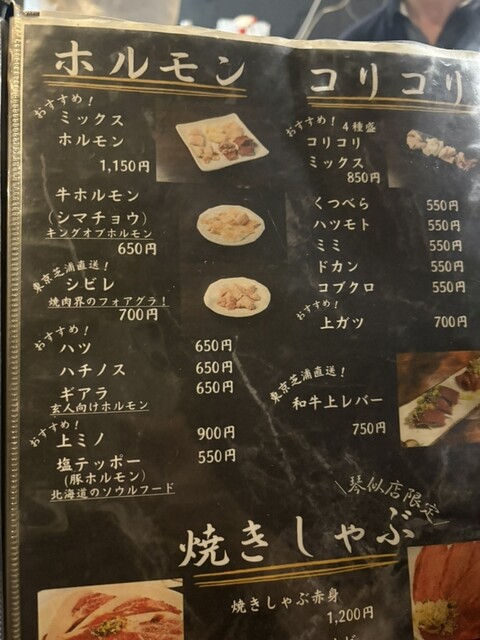 ホルモン
おすすめ！
ミックス
ホルモン
1,150円
牛ホルモン
(シマチョウ)
キングオブホルモン
650円
東京芝浦直送！
シビレ
焼肉界のフォアグラ！
700円
おすすめ！
ハツ 650円
ハチノス 650円
ギアラ 650円
玄人向けホルモン
おすすめ！
上ミノ 900円
塩テッポー 550円
(豚ホルモン)
北海道のソウルフード
コリコリ
おすすめ！ 4種盛
コリコリ
ミックス
850円
くつべら 550円
ハツモト 550円
ミミ 550円
ドカン 550円
コブクロ 550円
おすすめ！
上ガツ 700円
東京芝浦直送！
和牛上レバー
750円
琴似店限定
焼きしゃぶ
焼きしゃぶ赤身
1,200円